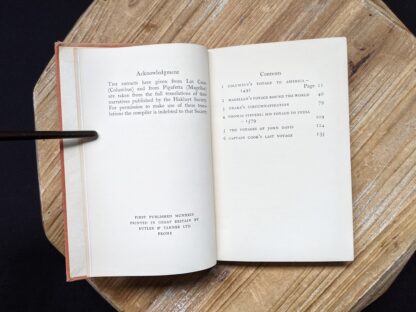 Acknowledgment
The extracts here given from Las Casas
(Columbus) and from Pigafetta (Magellan)
are taken from the full translations of their
narratives published by the Hakluyt Society.
For permission to make use of these trans-
lations the compiler is indebted to that Society
FIRST PUBLISHED MCMXXIX
PRINTED IN GREAT BRITAIN BY
BUTLER & TANNER LTD
FROME
Contents
1 COLUMBUS'S VOYAGE TO AMERICA—
1492 Page 11
2 MAGELLAN'S VOYAGE ROUND THE WORLD 46
3 DRAKE'S CIRCUMNAVIGATION 79
4 THOMAS STEVENS, HIS VOYAGE TO INDIA
1579 109
5 THE VOYAGES OF JOHN DAVIS 124
6 CAPTAIN COOK'S LAST VOYAGE 155